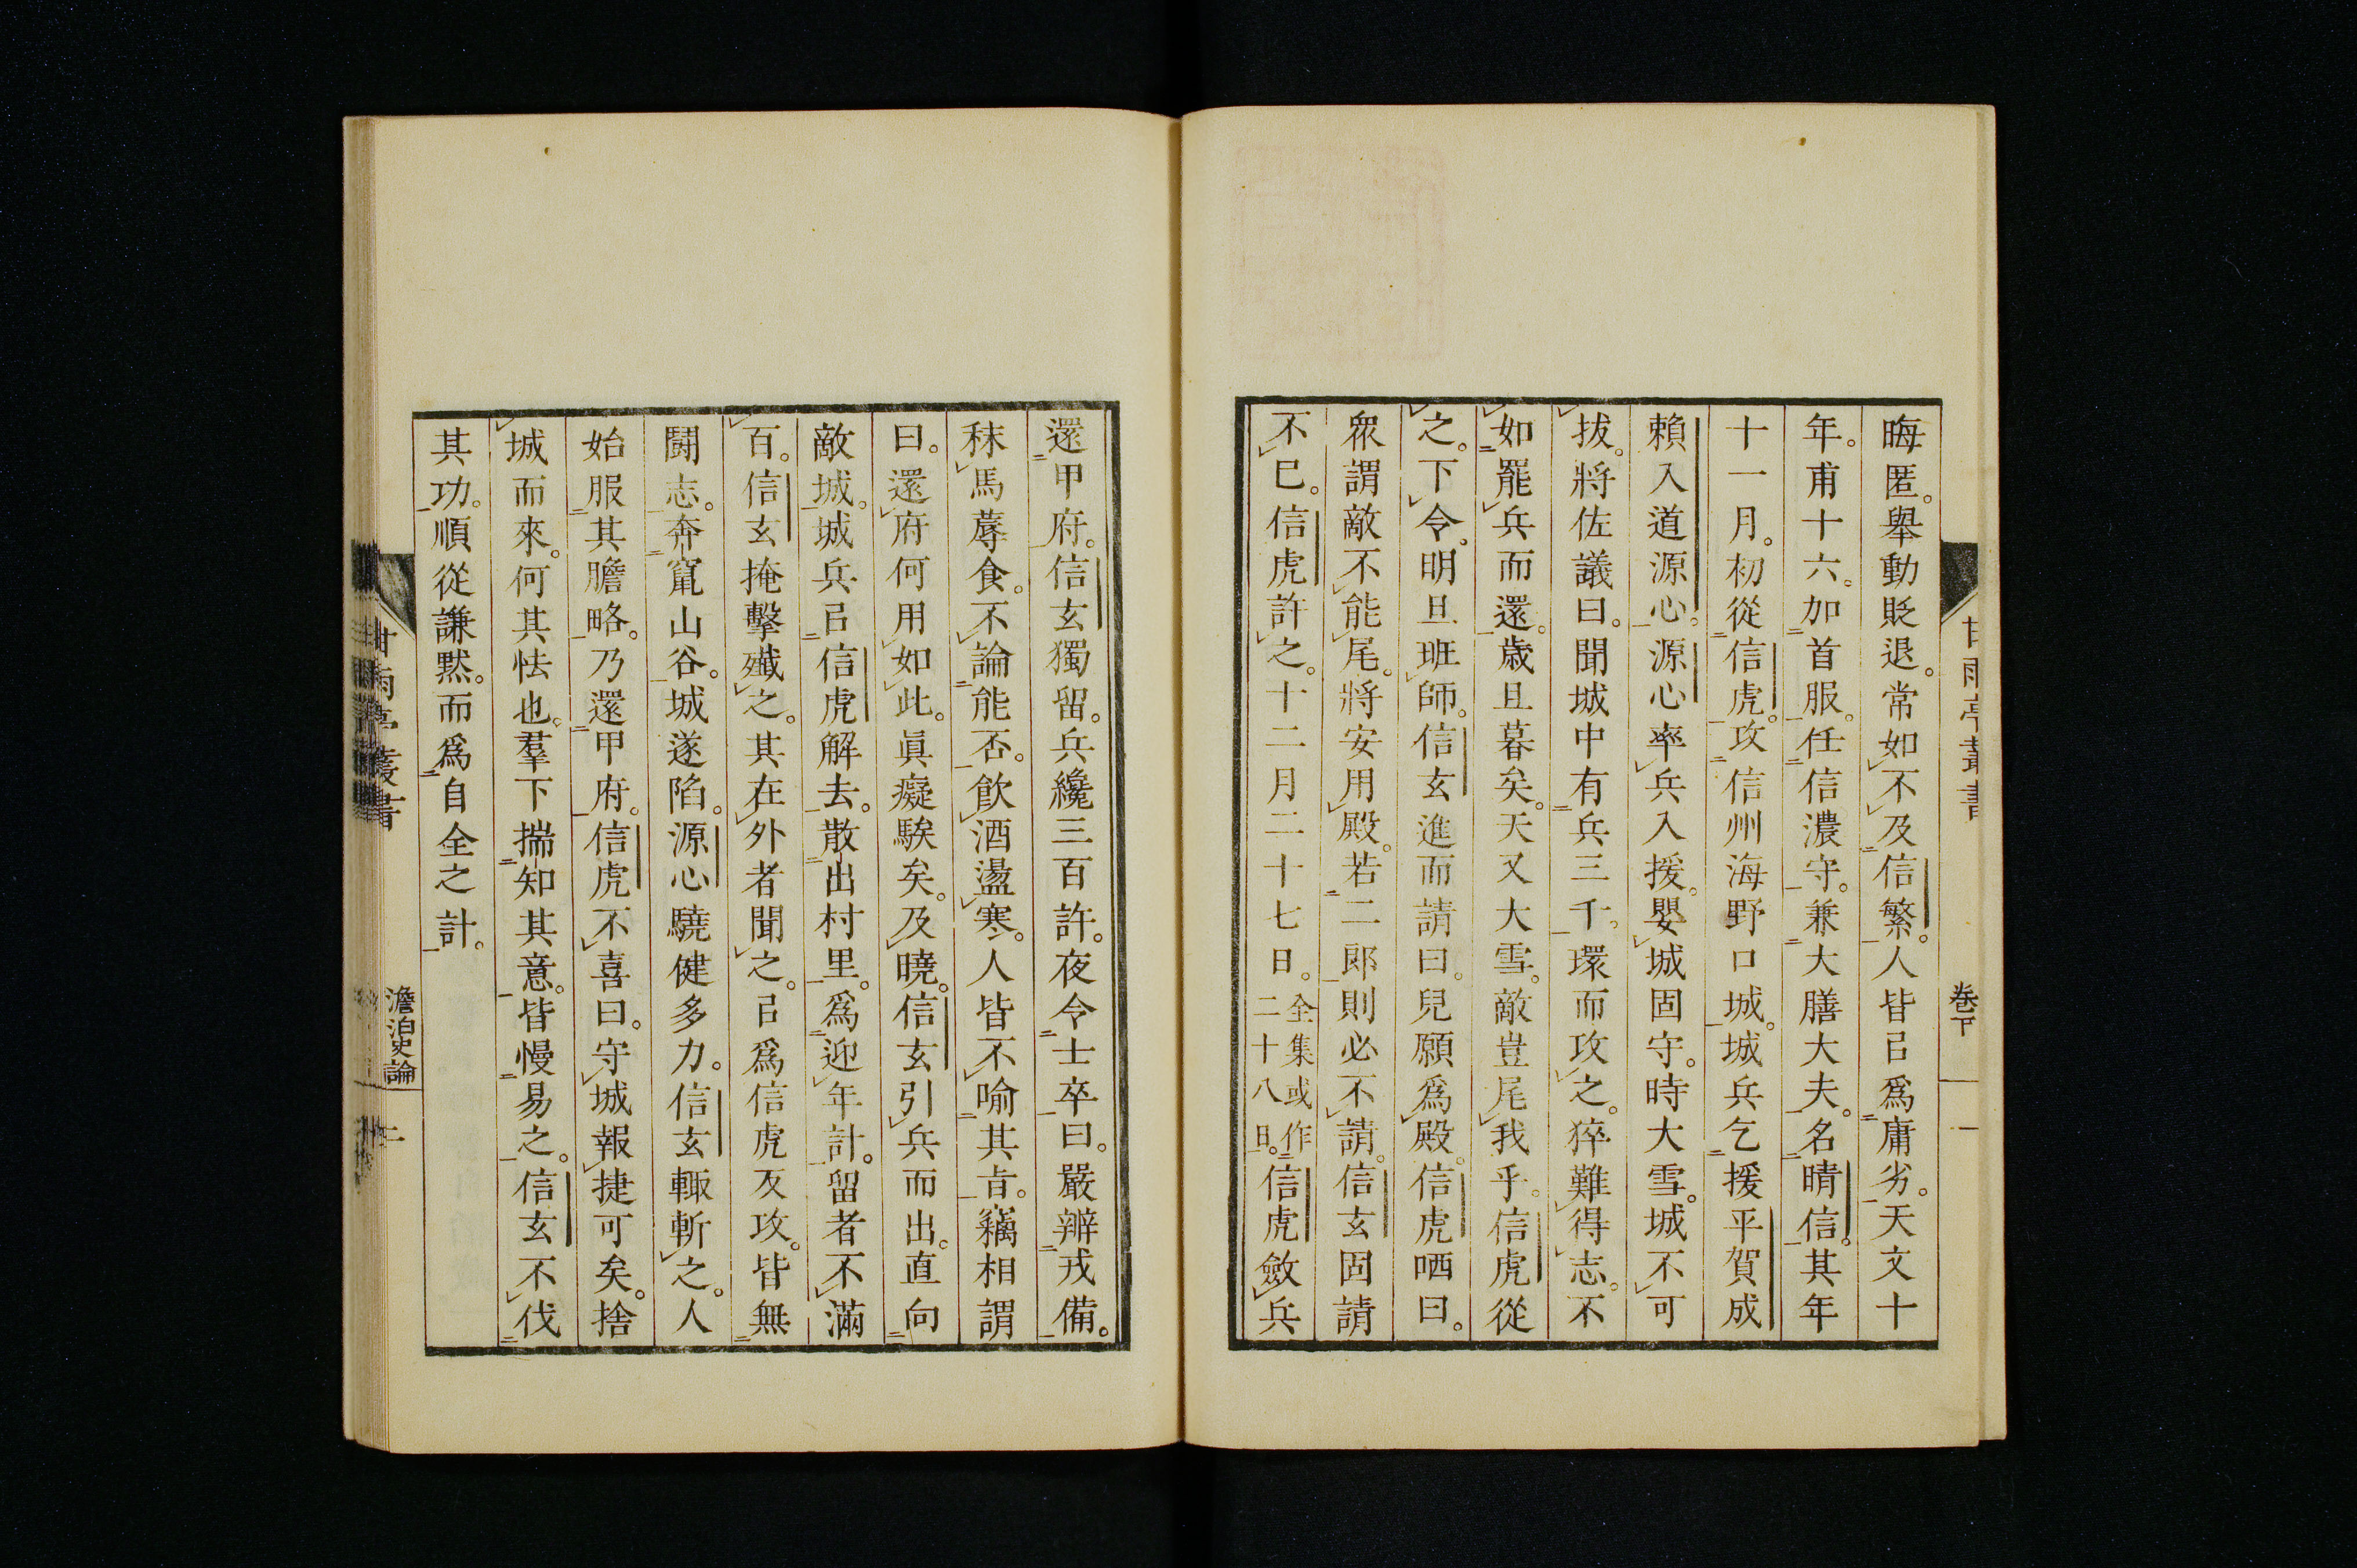 晦匿。舉動貶退。常如不及信繁。人皆㠯爲庸劣。天文十
年。甫十六。加首服。任信濃守。兼大膳大夫。名晴信。其年
十一月。初從信虎。攻信州海野口城。城兵乞援平賀成
賴入道源心。源心率兵入援。嬰城固守。時大雪。城不可
拔。將佐議曰。聞城中有兵三千。環而攻之。猝難得志。不
如罷兵而還。歲且暮矣。天又大雪。敵豈尾我乎。信虎從
之。下令。明旦班師。信玄進而請曰。兒願爲殿。信虎哂曰。
衆謂敵不能尾。將安用殿。若二郎則必不請。信玄固請
不已。信虎許之。十二月二十七日。全集或作二十八日。信虎斂兵
甘雨亭叢書 卷下 一
還甲府。信玄獨留。兵纔三百許。夜令士卒曰。嚴辦戎備。
秣馬蓐食。不論能否。飲酒盪寒。人皆不喻其旨。竊相謂
曰。還府何用如此。眞癡騃矣。及曉。信玄引兵而出。直向
敵城。城兵㠯信虎解去。散出村里。爲迎年計。留者不滿
百。信玄掩擊殲之。其在外者聞之。㠯爲信虎反攻。皆無
鬪志。奔竄山谷。城遂陷。源心驍健多力。信玄輙斬之。人
始服其膽略。乃還甲府。信虎不喜曰。守城報捷可矣。捨
城而來。何其怯也。羣下揣知其意。皆慢易之。信玄不伐
其功。順從謙默。而爲自全之計。
甘雨亭叢書 澹泊史論 二